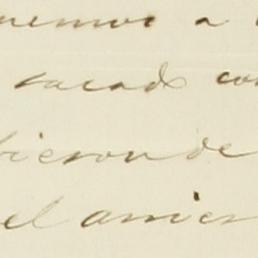 nemos a
sacado con
bieron de
el amien